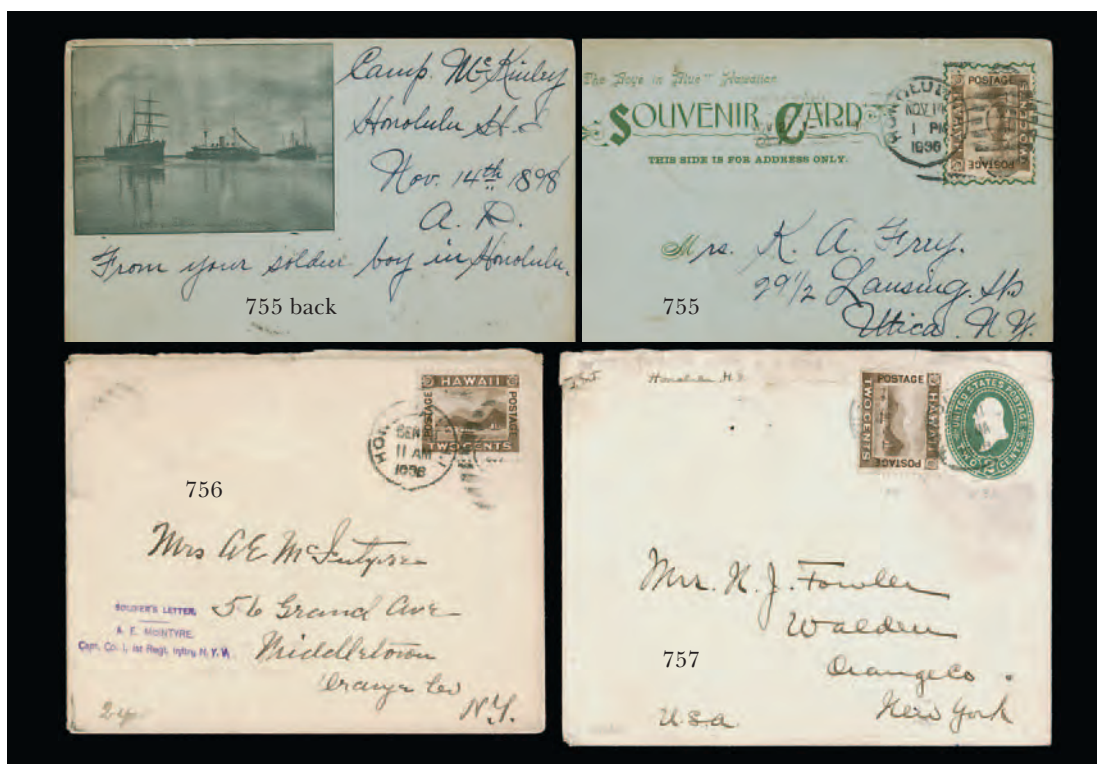 Camp. McKinley
Honolulu H. I.
Nov. 14th 1898
A. D.
From your soldier boy in Honolulu.
755 back
"The Boys in Blue" Hawaiian
SOUVENIR CARD
THIS SIDE IS FOR ADDRESS ONLY.
HONOLULU
NOV
1 PM
1898
POSTAGE
HAWAII
TWO CENTS
POSTAGE
Mrs. K. A. Frey.
29 1/2 Lansing. St
Utica. N. Y.
755
HAWAII
POSTAGE
POSTAGE
TWO CENTS
11 AM
1898
756
Mrs A E McIntyre
56 Grand Ave
Middletown
Orange Co
N.Y.
SOLDIER'S LETTER.
A. E. McINTYRE,
Capt. Co. I, 1st Regt. Inftry, N. Y. V.
Honolulu H. I.
POSTAGE
HAWAII
TWO CENTS
POSTAGE
UNITED STATES POSTAGE
TWO 2 CENTS
Mrs. N. J. Fowler
Walden
Orange Co.
New York
U.S.A
757